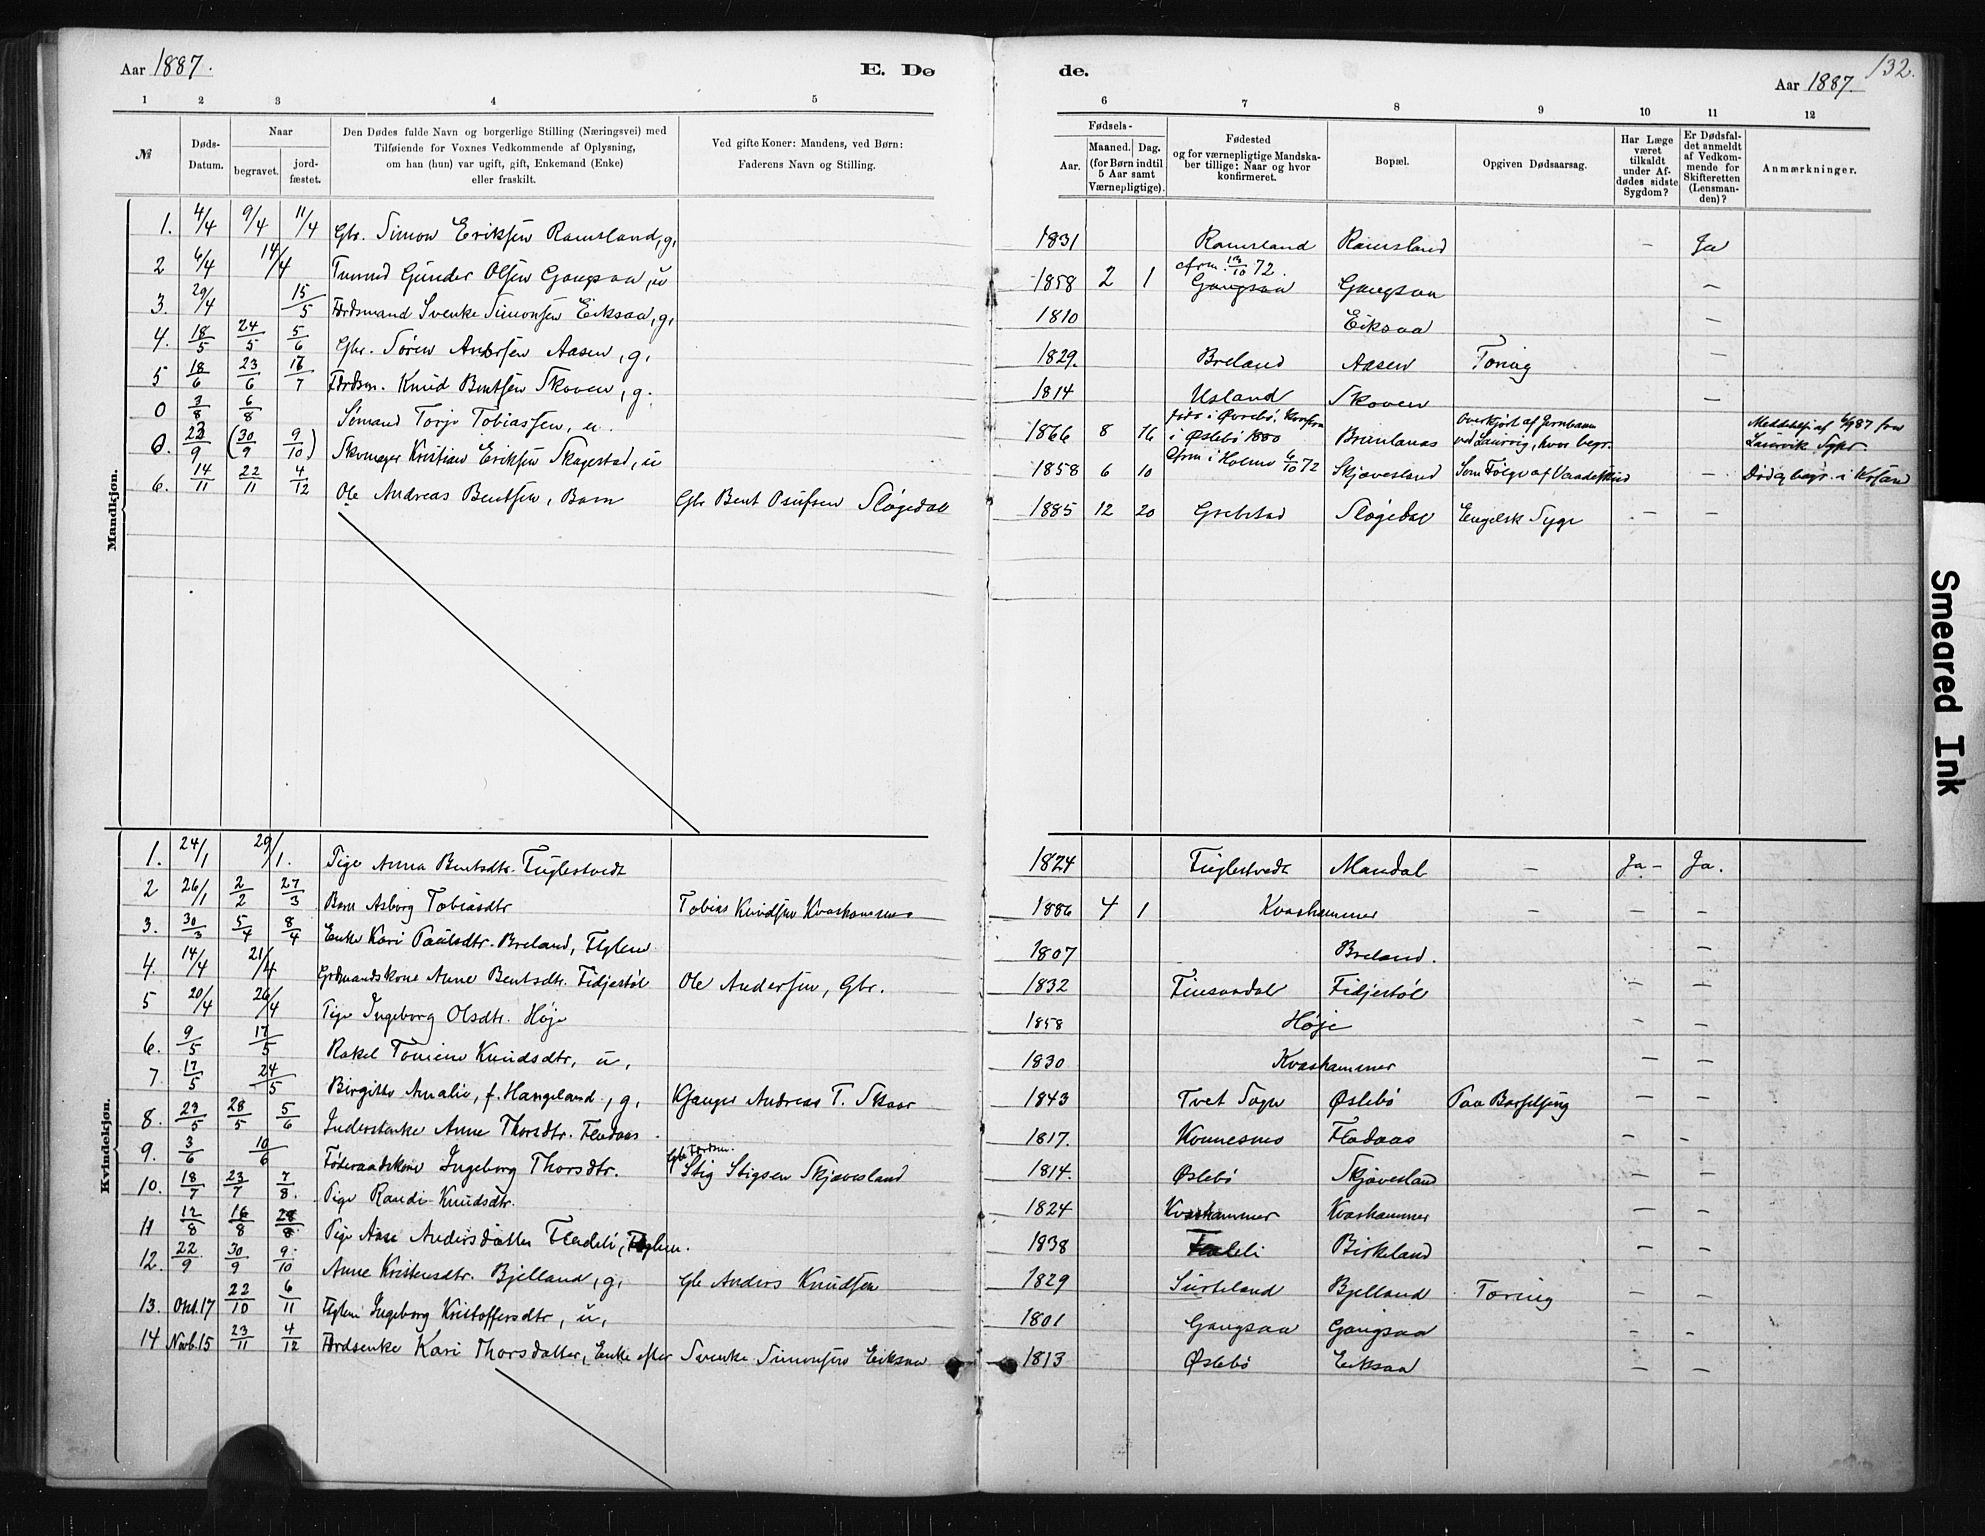 Aar 1887.
E. Dø
de.
132.
Aar 1887.
1 2 3 4 5 6 7 8 9 10 11 12
№
Døds-Datum.
Naar
begravet.
jord-fæstet.
Den Dødes fulde Navn og borgerlige Stilling (Næringsvei) med
Tilføiende for Voxnes Vedkommende af Oplysning,
om han (hun) var ugift, gift, Enkemand (Enke)
eller fraskilt.
Ved gifte Koner: Mandens, ved Børn:
Faderens Navn og Stilling.
Fødsels-
Aar.
Maaned. Dag.
(for Børn indtil
5 Aar samt
Værnepligtige).
Fødested
og for værnepligtige Mandska-
ber tillige: Naar og hvor
konfirmeret.
Bopæl.
Opgiven Dødsaarsag.
Har Læge
været
tilkaldt
under Af-
dødes sidste
Sygdom?
Er Dødsfal-
det anmeldt
af Vedkom-
mende for
Skifteretten
(Lensman-
den)?
Anmærkninger.
Mandkjøn.
1. 4/4 9/4 11/4 Gbr. Simon Eriksen Ramsland, g, 1831 Ramsland Ramsland – Ja
2 6/4 14/4 Gunder Olsen Gangsaa, u 1858 2 1 cfrm. 13/10 72. Gangsaa Gangsaa –
3. 29/4 15/5 Svenke Simonsen Eiksaa, g, 1810 Eiksaa –
4. 18/5 24/5 5/6 Gbr. Søren Andersen Aasen, g, 1829. Breland Aasen Tæring –
5 18/6 23/6 17/7 Knud Bentsen Skoven, g. 1814 Usland Skoven –
0 3/8 6/8 Sømand Torje Tobiassen, u. 1866 8 16 født i Øvrebø, Konfirm i Øslebø 1880 Brunlanæs Overkjørt af Jernbanen ved Laurvig, hvor begr.
0. 23/9 (30/9 9/10) Skomager Kristian Eriksen Skagestad, u 1858 6 10 cfrm i Holme 6/10 72 Skjævesland Som Følge af –
6. 14/11 22/11 4/12 Ole Andreas Bentsen, Barn Gbr Bent Osufsen Sløgedal 1885 12 20 Grebstad Sløgedal Engelsk Syge – –
Kvindekjøn.
1. 24/1 29/1. Pige Anna Bentsdtr. Fuglestvedt 1824 Fuglestvedt Mandal – Ja – Ja.
2 26/1 2/2 27/3 Barn Asborg Tobiasdtr Tobias Knudsen Kvashammer 1886 4 1 Kvashammer – – –
3. 30/3 5/4 8/4 Enke Kari Paulsdtr. Breland, Fglem 1807 Breland. –
4. 14/4 21/4 Grdmandskone Anne Bentsdtr. Fidjestøl Ole Andersen, Gbr. 1832 Finsaadal Fidjestøl – –
5 20/4 26/4 Pige Ingeborg Olsdtr. Høje 1858 Høje – –
6. 9/5 17/5 Rakel Tomine Knudsdtr, u, 1830 Kvashammer – –
7. 17/5 24/5 Birgitte Amalie, f. Hangeland, g, Kjsanger Andreas T. Skaar 1843 Tvet Sogn Øslebø Paa Barselseng – –
8. 23/5 28/5 5/6 Inderstenke Anne Thorsdtr. Fladaas. 1817. Konnesmo Fladaas – –
9. 3/6 10/6 Føderaadskone Ingeborg Thorsdtr. Stig Stigsen Skjævesland 1814. Øslebø Skjævesland – –
10. 18/7 23/7 7/8. Pige Randi Knudsdtr. 1824 Kvashammer Kvashammer – –
11 12/8 16/8 28/8. Pige Aase Andersdatter Fladeli, Fglem. 1838 Fladeli Birkland – –
12. 22/9 30/9 9/10 Anne Kristensdtr. Bjelland, g, Gbr Anders Knudsen 1829 Surteland Bjelland Tæring – –
13. Okt. 17 22/10 6/11 Fglem Ingeborg Kristoffersdtr, u, 1801 Gangsaa Gangsaa – –
14 Novb. 15 23/11 4/12 Fdrdsenke Kari Thorsdatter, Enke efter Svenke Simonsen Eiksaa 1813 Øslebø Eiksaa – –
Smeared Ink